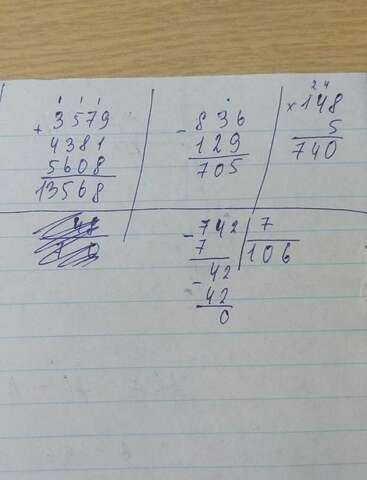 3579
+
4381
5608
13568
- 836
129
705
2 4
× 148
5
740
- 742 | 7
7 | 106
- 42
42
0